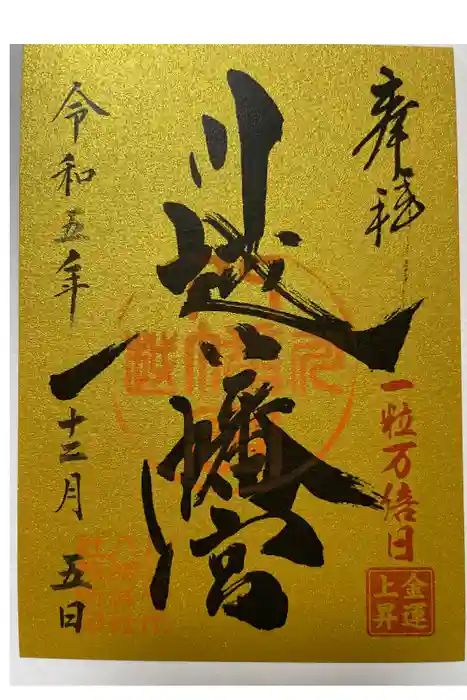 奉拝
一粒万倍日
金運
上昇
川越八幡宮
令和五年
十二月
五日